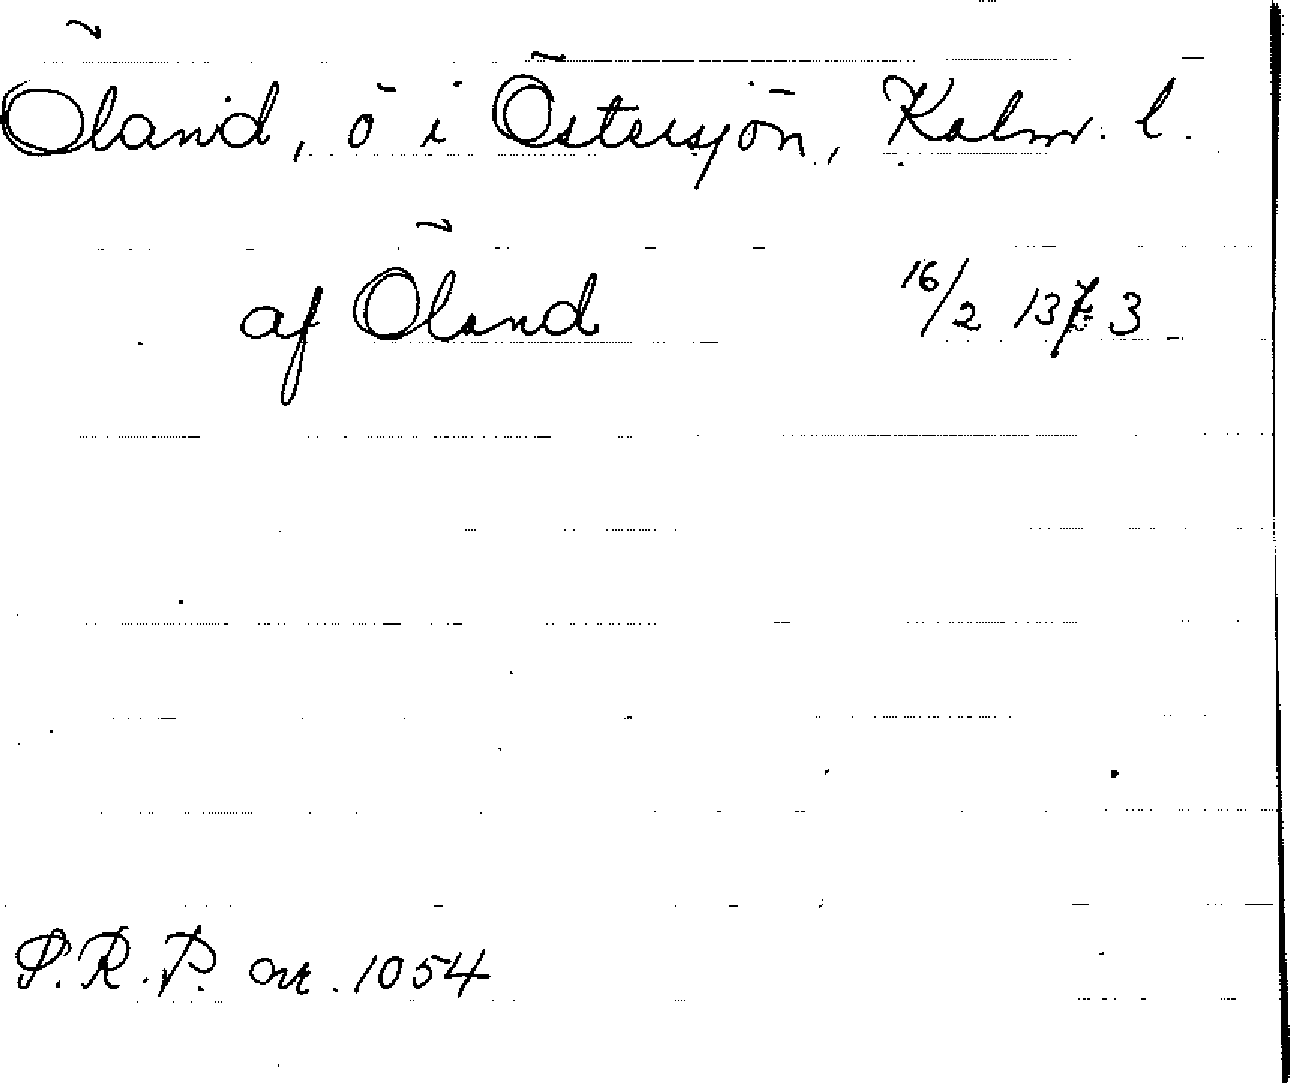 Öland, ö i Östersjön, Kalm. l.
af Öland 16/2 1373
S.R.P. nr. 1054